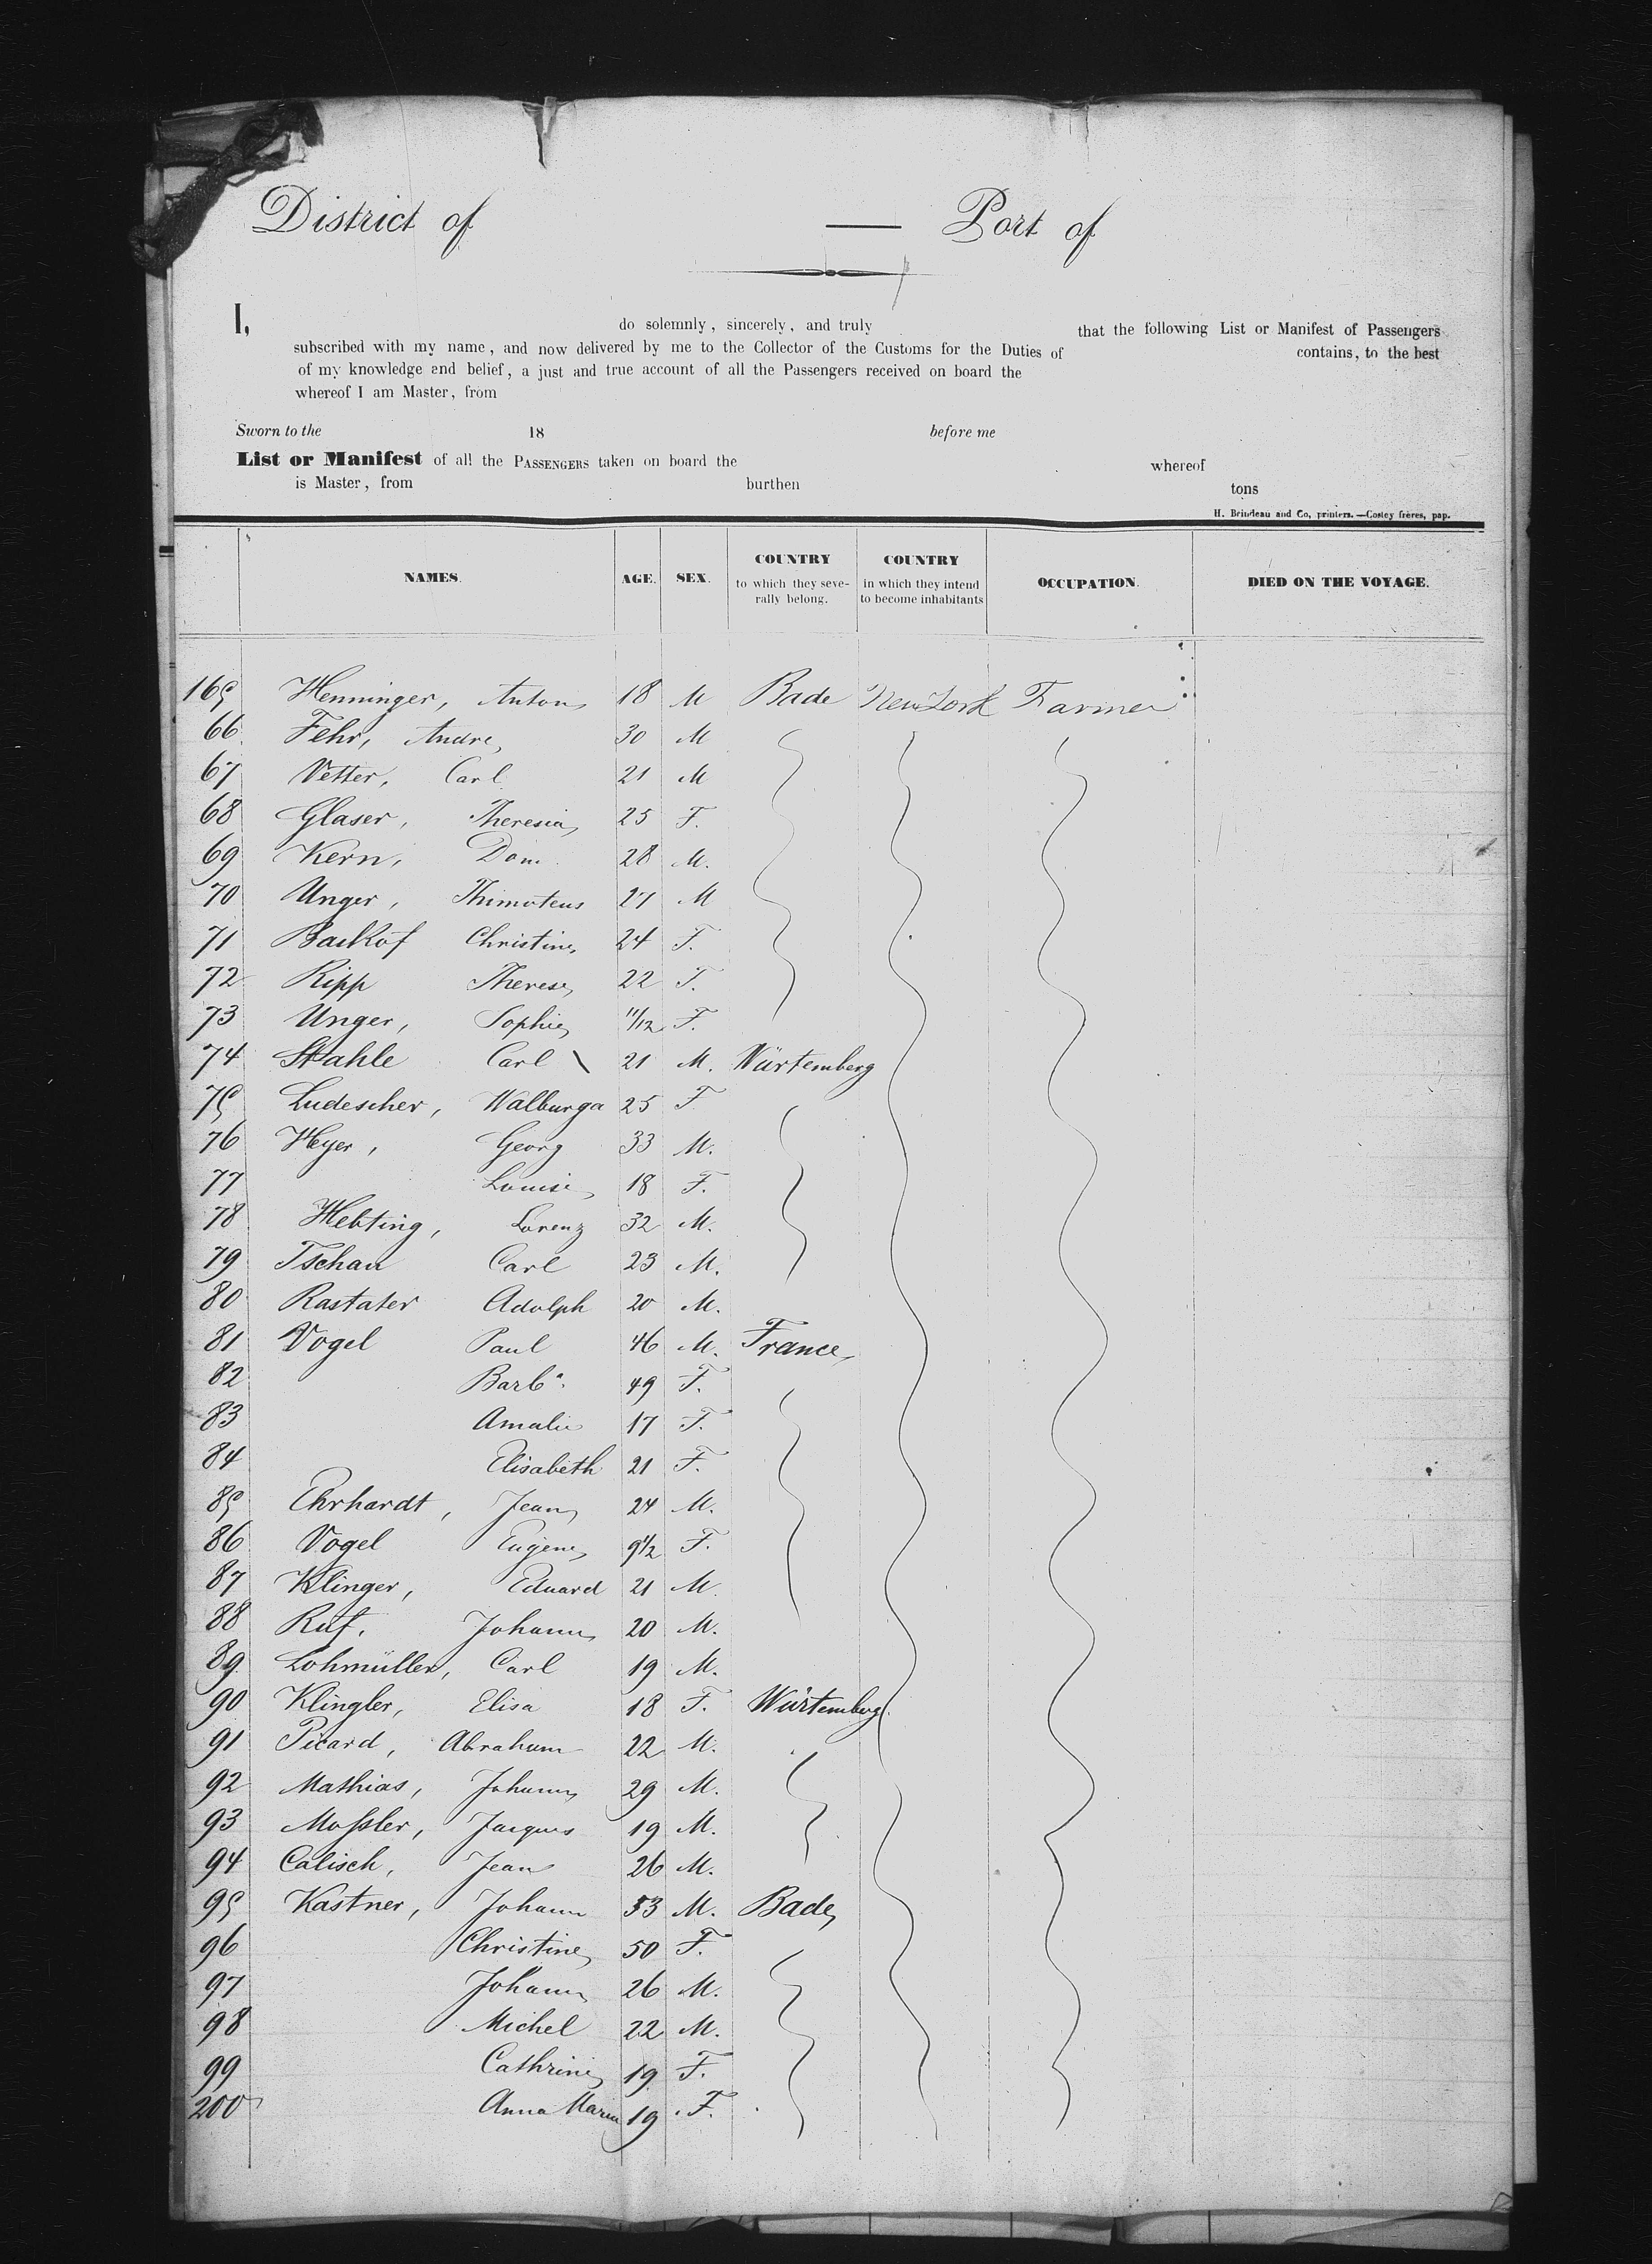 District of — Port of
I, do solemnly, sincerely, and truly that the following List or Manifest of Passengers
subscribed with my name, and now delivered by me to the Collector of the Customs for the Duties of contains, to the best
of my knowledge and belief, a just and true account of all the Passengers received on board the
whereof I am Master, from
Sworn to the 18 before me
List or Manifest of all the PASSENGERS taken on board the whereof
is Master, from burthen tons
H. Brindeau and Co, printers.—Costey frères, pap.
NAMES. AGE. SEX. COUNTRY to which they severally belong. COUNTRY in which they intend to become inhabitants OCCUPATION. DIED ON THE VOYAGE.
165 Henninger, Anton 18 M Bade New York Farmer
66 Fehr, Andre 30 M
67 Vetter, Carl 21 M
68 Glaser, Theresia 25 F.
69 Kern, Dom. 28 M.
70 Unger, Thimoteus 27 M
71 Backof Christine 24 F.
72 Ripp Therese 22 F.
73 Unger, Sophie 11/12 F.
74 Stahle Carl 21 M. Würtemberg
75 Ludescher, Walburga 25 F
76 Heyer, Georg 33 M.
77 Louise 18 F.
78 Hebting, Lorenz 32 M.
79 Tschan Carl 23 M.
80 Rastater Adolph 20 M.
81 Vogel Paul 46 M. France
82 Barba. 49 F.
83 Amalie 17 F.
84 Elisabeth 21 F.
85 Ehrhardt, Jean 24 M.
86 Vogel Eugene 9 1/2 F.
87 Klinger, Eduard 21 M.
88 Ruf, Johann 20 M.
89 Lohmüller, Carl 19 M.
90 Klingler, Elisa 18 F. Würtemberg
91 Picard, Abraham 22 M.
92 Mathias, Johann 29 M.
93 Mossler, Jacques 19 M.
94 Calisch, Jean 26 M.
95 Kastner, Johann 53 M. Bade
96 Christine 50 F.
97 Johann 26 M.
98 Michel 22 M.
99 Cathrine 19 F.
200 Anna Maria 19 F.